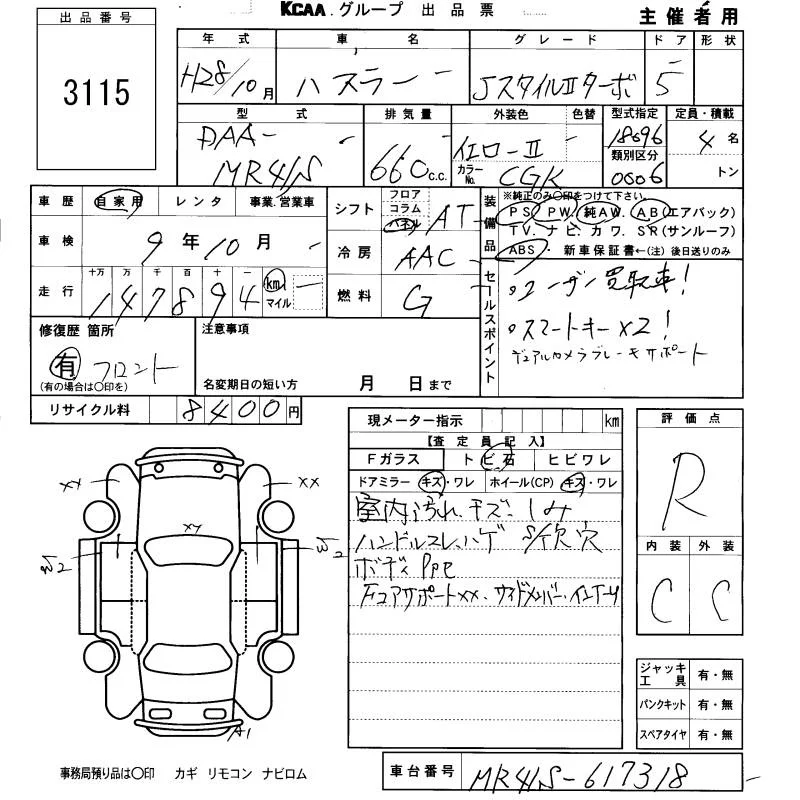 出品番号
3115
KCAA.グループ 出品票
主催者用
年式 車名 グレード ドア 形状
H28/10月 ハスラー JスタイルIIターボ 5
型式 排気量 外装色 色替 型式指定 定員・積載
DAA-
MR41S
660c.c.
イエロー II
カラーNo. CGK
18696
類別区分
0006
4名
トン
車歴 自家用 レンタ 事業.営業車
車検 9年10月
走行 十万 万 千 百 十 一
147894 km マイル
シフト フロア コラム パネル AT
冷房 AAC
燃料 G
装備品
※純正のみ〇印をつけて下さい。
PS PW 純AW. AB(エアバック)
TV. ナビ. カワ. SR(サンルーフ)
ABS・ 新車保証書←(注)後日送りのみ
セールスポイント
。ユーザー買取車!
。スマートキー×2!
デュアルカメラブレーキサポート
修復歴 箇所
有 フロント
(有の場合は〇印を)
注意事項
名変期日の短い方 月 日まで
リサイクル料 8400円
現メーター指示 km
【査定員記入】
Fガラス トビ石 ヒビワレ
ドアミラー キズ・ワレ ホイール(CP) キズ・ワレ
室内汚れ、キズ、しみ
ハンドルスレ、ハゲ S/欠穴
ボディ PPC
XX・サイドメンバー・
評価点
R
内装 外装
C C
XX XX
XY
W2 W2
A1
ジャッキ工具 有・無
パンクキット 有・無
スペアタイヤ 有・無
事務局預り品は〇印 カギ リモコン ナビロム
車台番号 MR41S-617318